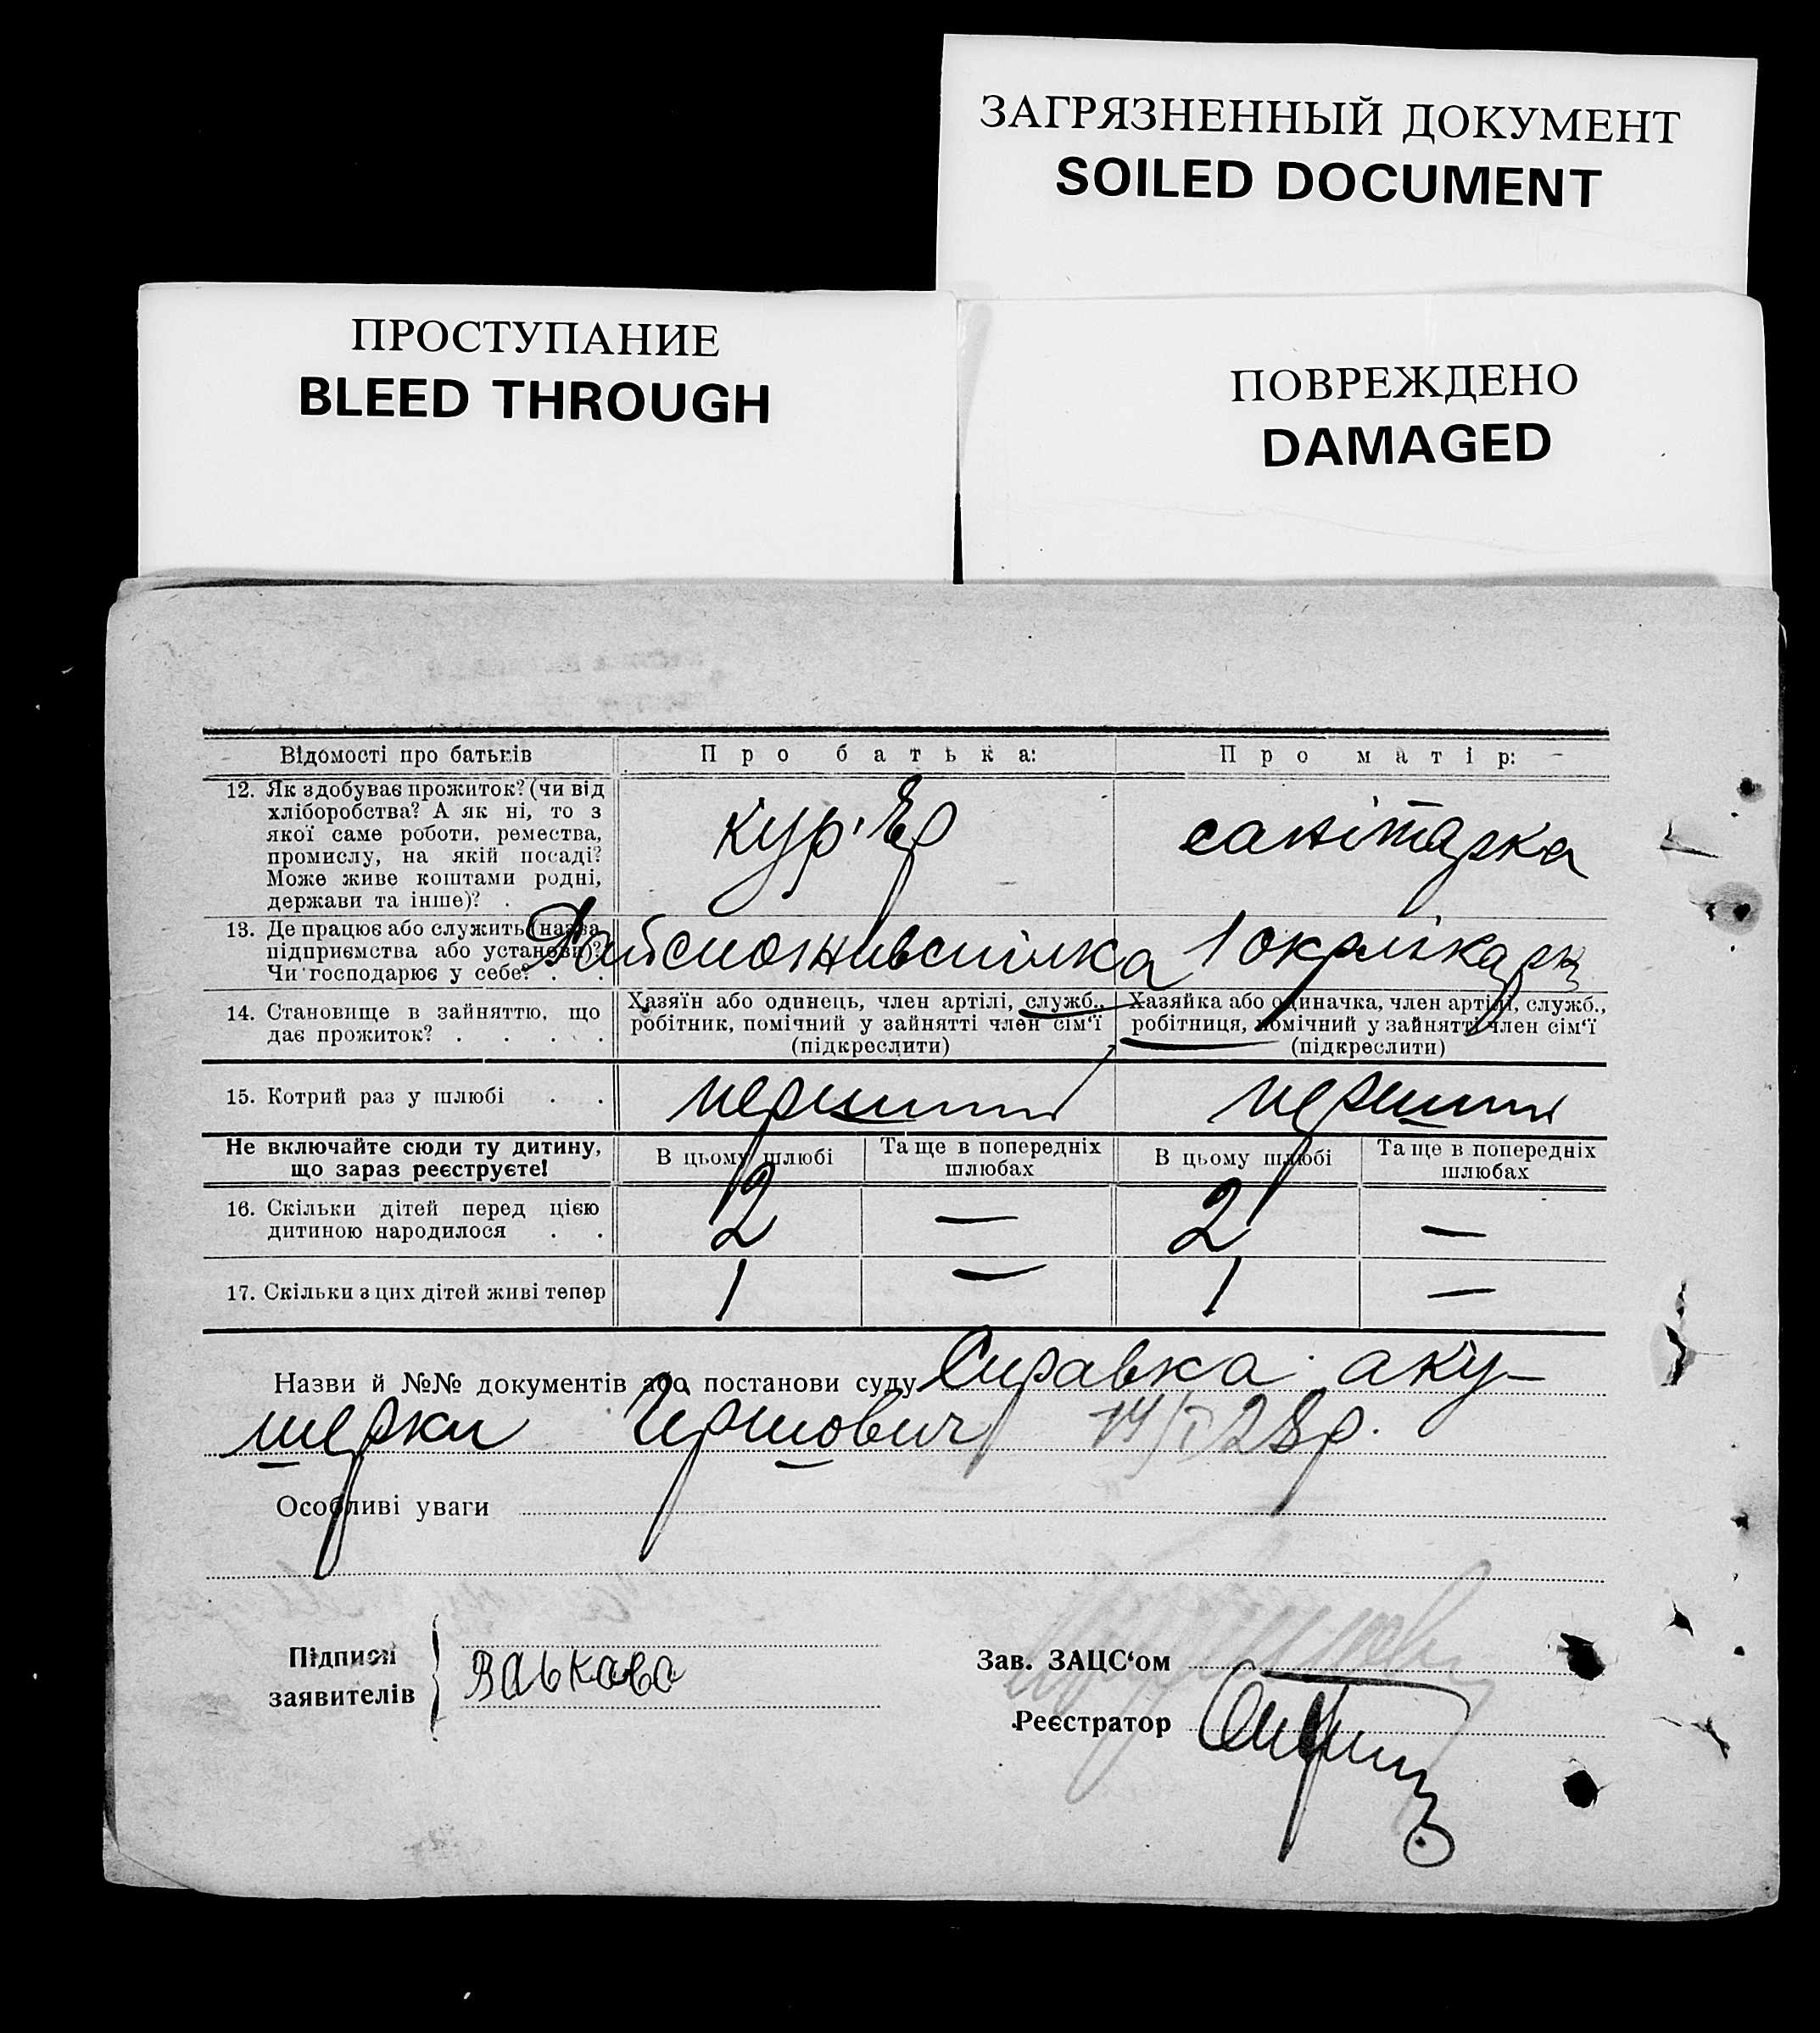 ЗАГРЯЗНЕННЫЙ ДОКУМЕНТ
SOILED DOCUMENT
ПРОСТУПАНИЕ
BLEED THROUGH
ПОВРЕЖДЕНО
DAMAGED
Відомості про батьків
Про батька:
Про матір:
12. Як здобуває прожиток? (чи від
хліборобства? А як ні, то з
якої саме роботи, ремества,
промислу, на якій посаді?
Може живе коштами родні,
держави та інше)? .
кур'єр
санітарка
13. Де працює або служить (назва
підприємства або установи)?
Чи господарює у себе? . .
Райспоживспілка
1 окрлікарн
14. Становище в зайняттю, що
дає прожиток? . . . .
Хазяїн або одинець, член артілі, служб.,
робітник, помічний у зайнятті член сім'ї
(підкреслити)
Хазяйка або одиначка, член артілі, служб.,
робітниця, помічний у зайнятті член сім'ї
(підкреслити)
15. Котрий раз у шлюбі . .
перший
перший
Не включайте сюди ту дитину,
що зараз реєструєте!
В цьому шлюбі
Та ще в попередніх
шлюбах
В цьому шлюбі
Та ще в попередніх
шлюбах
16. Скільки дітей перед цією
дитиною народилося . .
2 — 2 —
17. Скільки з цих дітей живі тепер
1 — 1 —
Назви й №№ документів або постанови суду Справка аку-
шерки Гершович 14/I 28р.
Особливі уваги
Підписи
заявителів
Зав. ЗАЦС'ом
Реєстратор